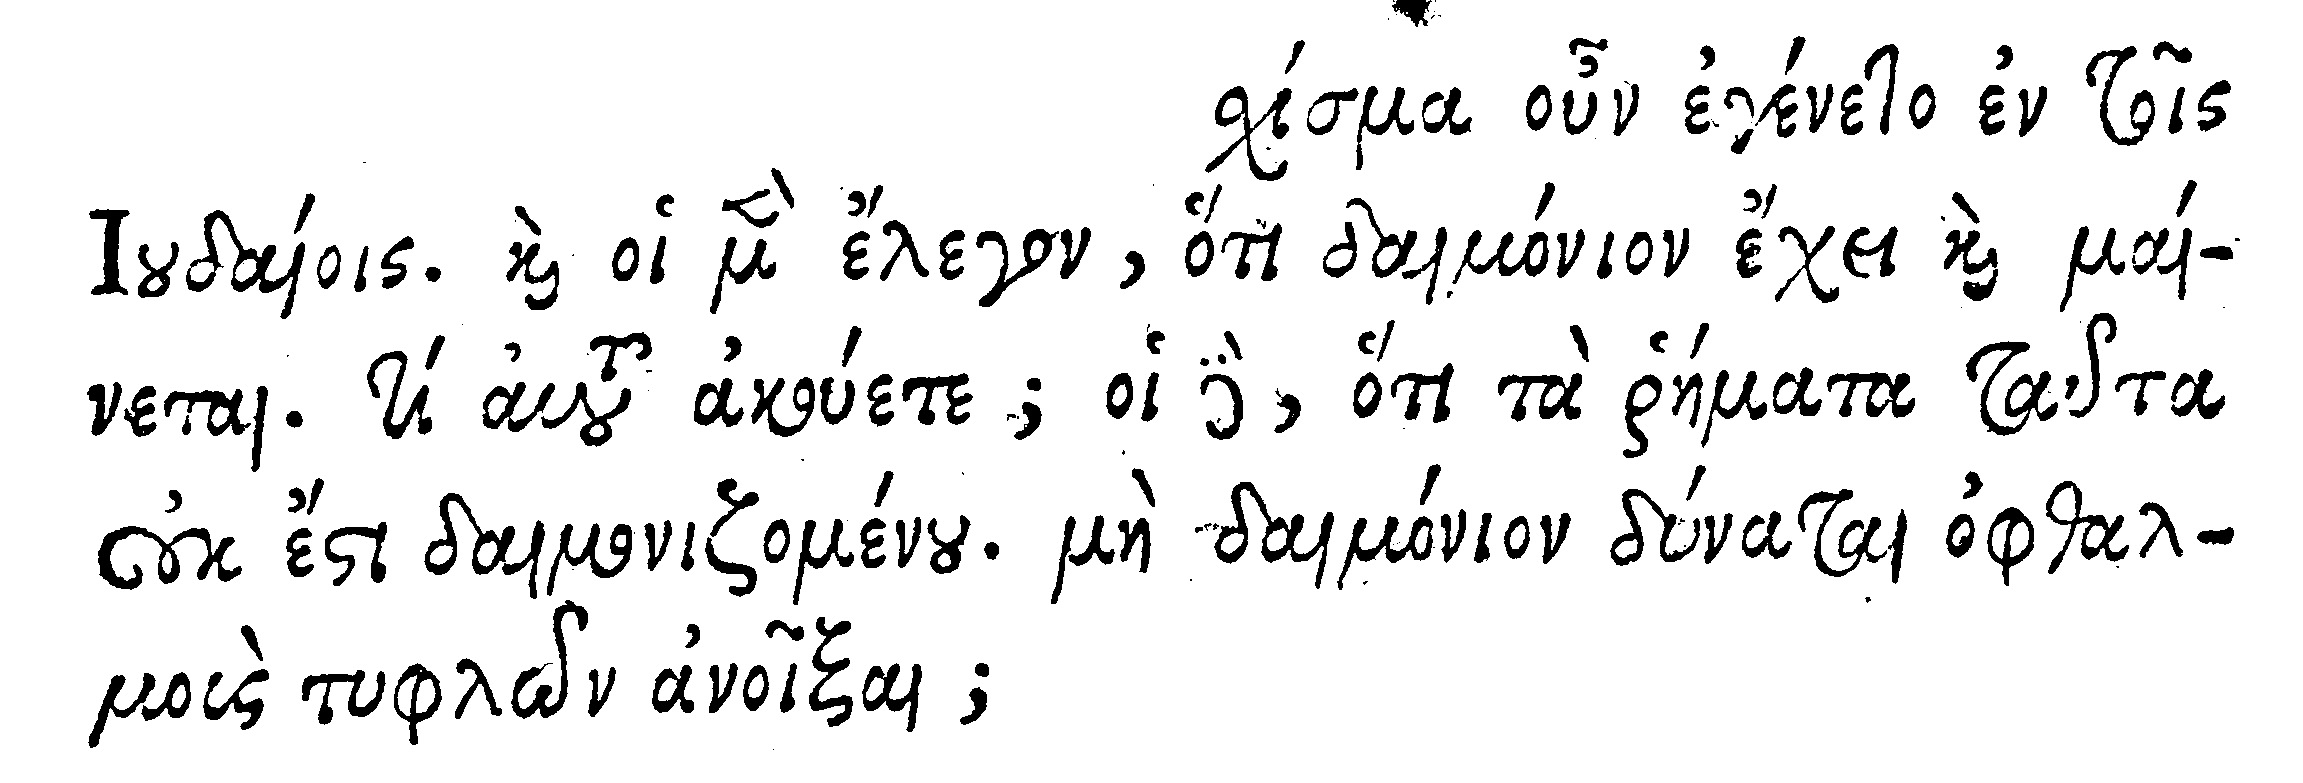 σχίσμα οὖν ἐγένετο ἐν τοῖς
Ιουδαίοις. καὶ οἱ μὲν ἔλεγον, ὅτι δαιμόνιον ἔχει καὶ μαί-
νεται. τί αὐτοῦ ἀκούετε; οἱ δὲ, ὅτι τὰ ῥήματα ταῦτα
οὐκ ἔστι δαιμονιζομένου. μὴ δαιμόνιον δύναται ὀφθαλ-
μοὺς τυφλῶν ἀνοῖξαι;